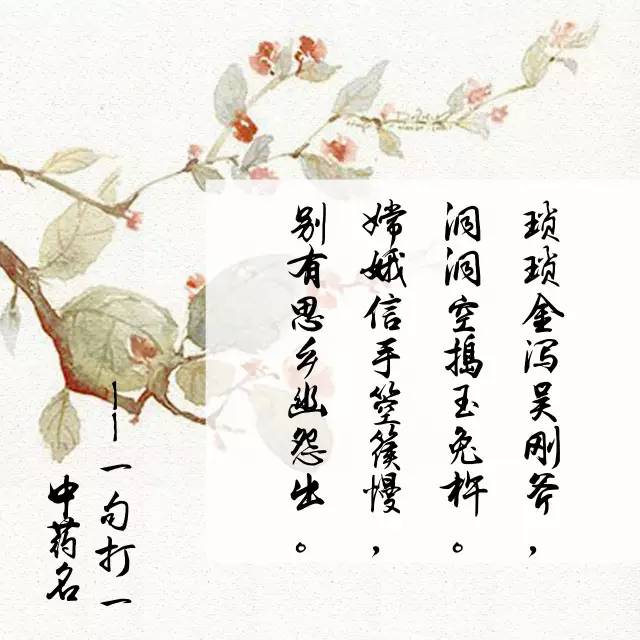 琐琐金泻吴刚斧，
洞洞空捣玉兔杵。
嫦娥信手箜篌慢，
别有思乡幽怨出。
——一句打一
中药名